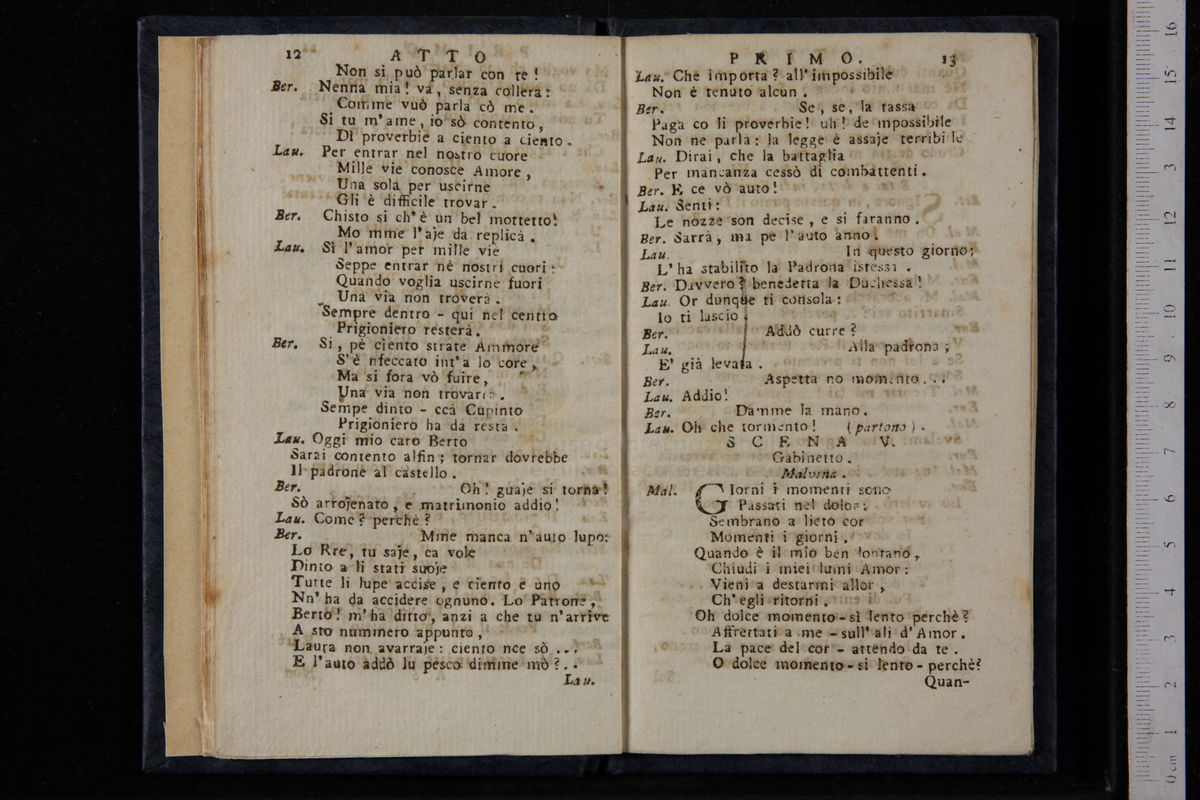 12 ATTO
Non si può parlar con te !
Ber. Nenna mia! va, senza collera:
Comme vuò parla cò me .
Si tu m'ame, io sò contento ,
Dì proverbie a ciento a ciento .
Lau. Per entrar nel nostro cuore
Mille vie conosce Amore ,
Una sola per uscirne
Gli è difficile trovar .
Ber. Chisto si ch'è un bel mottetto!
Mo mme l'aje da replicà .
Lau. Sì l'amor per mille vie
Seppe entrar nè nostri cuori :
Quando voglia uscirne fuori
Una via non troverà .
Sempre dentro - qui nel centro
Prigioniero resterà .
Ber. Si, pè ciento strate Ammore
S'è nfeccato int'a lo core ,
Ma si fora vò fuire ,
Una via non trovarrà .
Sempe dinto - ccà Cupinto
Prigioniero ha da restà .
Lau. Oggi mio caro Berto
Sarai contento alfin ; tornar dovrebbe
Il padrone al castello .
Ber. Oh! guaje si torna!
Sò arrojenato , e matrimonio addio!
Lau. Come? perchè ?
Ber. Mme manca n'auto lupo:
Lo Rre, tu saje, ca vole
Dinto a li stati suoje
Tutte li lupe accise , e ciento e uno
Nn'ha da accidere ognuno. Lo Patrone ,
Berto! m'ha ditto, anzi a che tu n'arrive
A sto nummero appunto ,
Laura non avarraje: ciento nce sò ...
E l'auto addò lu pesco dimme mò ?..
Lau.
PRIMO. 13
Lau. Che importa ? all'impossibile
Non è tenuto alcun .
Ber. Se, se, la tassa
Paga co li proverbie! uh! de mpossibile
Non ne parlà : la legge è assaje terribile
Lau. Dirai, che la battaglia
Per mancanza cessò di combattenti .
Ber. E ce vò auto!
Lau. Senti:
Le nozze son decise , e si faranno .
Ber. Sarrà, ma pe l'auto anno .
Lau. In questo giorno;
L'ha stabilito la Padrona istessa .
Ber. Davvero? benedetta la Duchessa!
Lau. Or dunque ti consola :
Io ti lascio .
Ber. Addò curre ?
Lau. Alla padrona ;
E' già levata .
Ber. Aspetta no momento...
Lau. Addio!
Ber. Damme la mano .
Lau. Oh che tormento! (partono) .
SCENA V.
Gabinetto .
Malvina .
Mal. Giorni i momenti sono
Passati nel dolor;
Sembrano a lieto cor
Momenti i giorni .
Quando è il mio ben lontano ,
Chiudi i miei lumi Amor :
Vieni a destarmi allor ,
Ch'egli ritorni .
Oh dolce momento - sì lento perchè ?
Affrettati a me - sull'ali d'Amor .
La pace del cor - attendo da te .
O dolce momento - si lento - perchè?
Quan-
0 cm 1 2 3 4 5 6 7 8 9 10 11 12 13 14 15 16